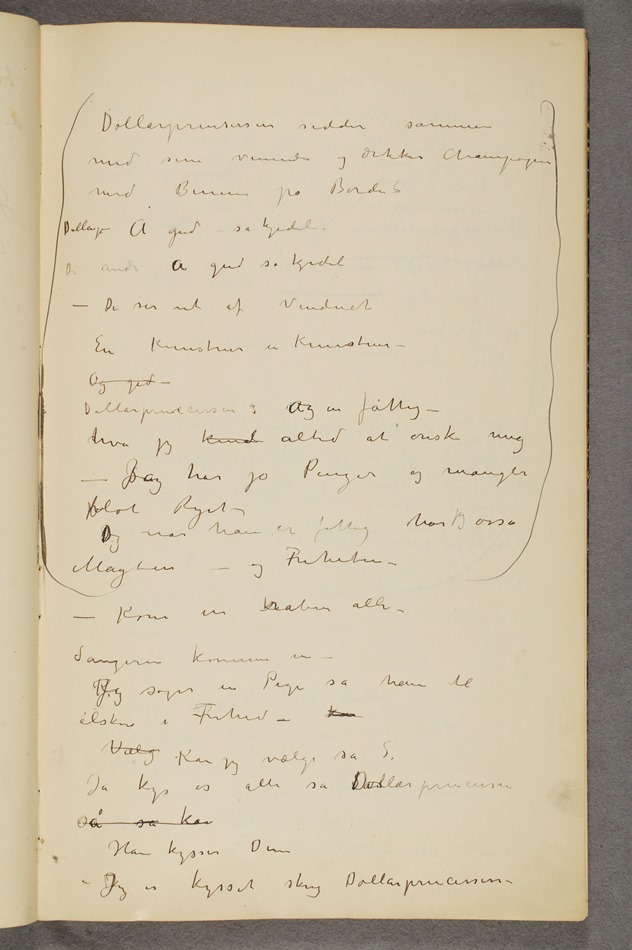 Dollarprinsessen sidder sammen
med sine veninder og drikker Champagne
med Benene på Bordet
Dollarp A gud så kjedeli.
De andre A gud så kjedeli
– De ser ut af Vinduet
En Kunstner en Kunstner –
Og gud –
Dollarprincessen : Og en fattig –
hva jeg kunde altid at ønske mig
– Jeg har jo Penger og mangler
blot Ryet –
Og når han er fattig har jeg osså
Magten – og Friheten –
– Kom in råber alle –
Sangeren kommer in –
Jeg søger en Pige sa han til
elsker i Frihed –
Vælg Kan jeg vælge sa S.
Ja kys os alle sa Dollarprincessen
så sa
Han kysser Dem
– Jeg er kysset skreg Dollarprincessen –